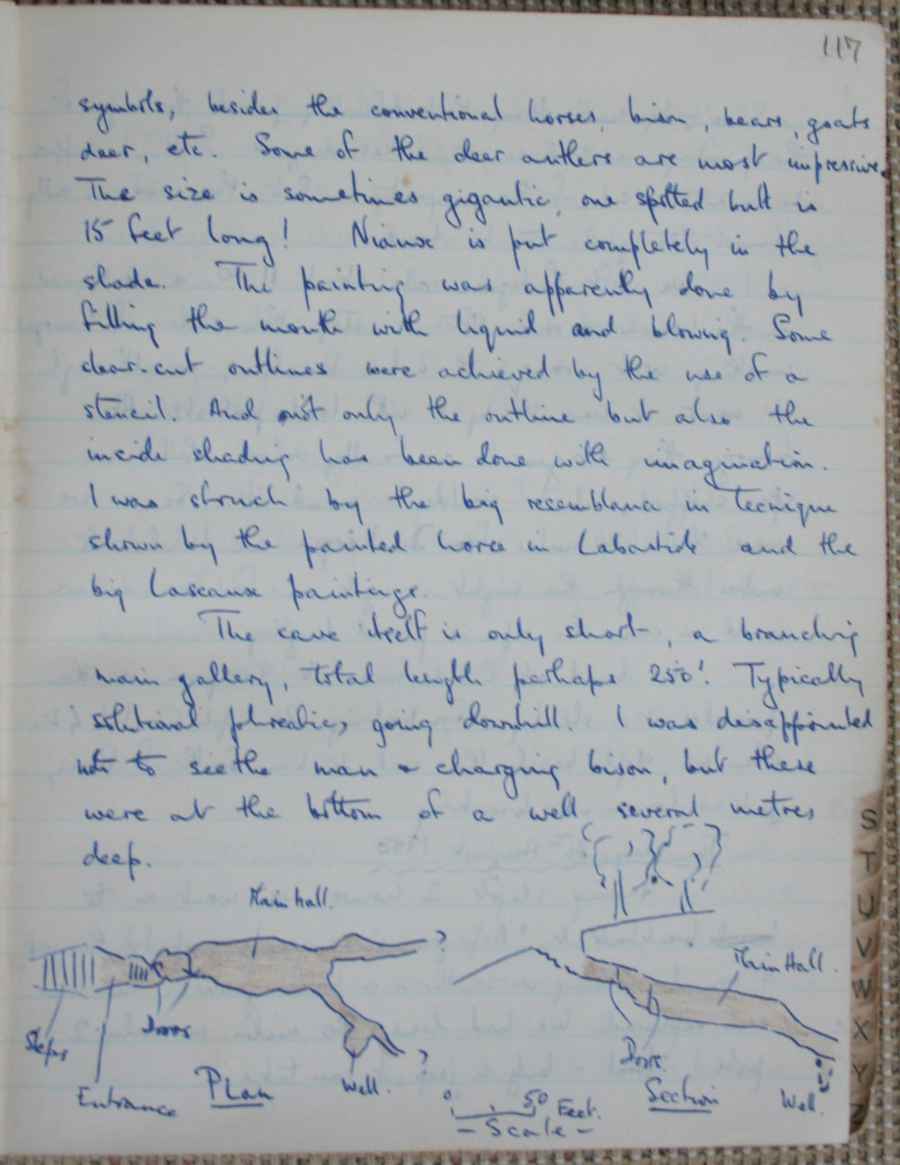 117
symbols, besides the conventional horses, bison, bears, goats
deer, etc. Some of the deer antlers are most impressive.
The size is sometimes gigantic, one spotted bull is
15 feet long! Niaux is put completely in the
shade. The painting was apparently done by
filling the mouth with liquid and blowing. Some
clear-cut outlines were achieved by the use of a
stencil. And not only the outline but also the
inside shading has been done with imagination.
I was struck by the big resemblance in tecnique
shown by the painted horse in Labastide and the
big Lascaux paintings.
The cave itself is only short, a branching
main gallery, total length perhaps 250'. Typically
solutional phreatic, going downhill. I was disappointed
not to see the man & charging bison, but these
were at the bottom of a well several metres
deep.
Main hall.
?
Main Hall.
Steps
Doors
?
Doors
Well.
Entrance
Plan
0 50 Feet.
- Scale -
Section
Well.
S
T
U
V
W
X
Y
Z